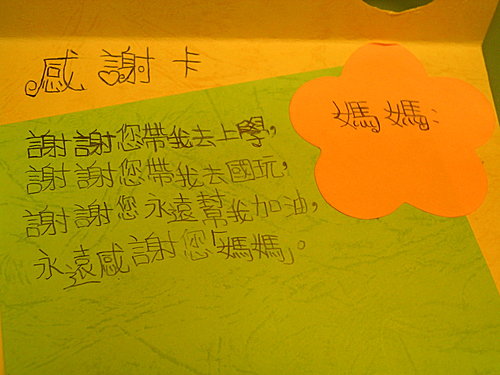 感謝卡
媽媽:
謝謝您帶我去上學,
謝謝您帶我去國玩,
謝謝您永遠幫我加油,
永遠感謝您「媽媽」。